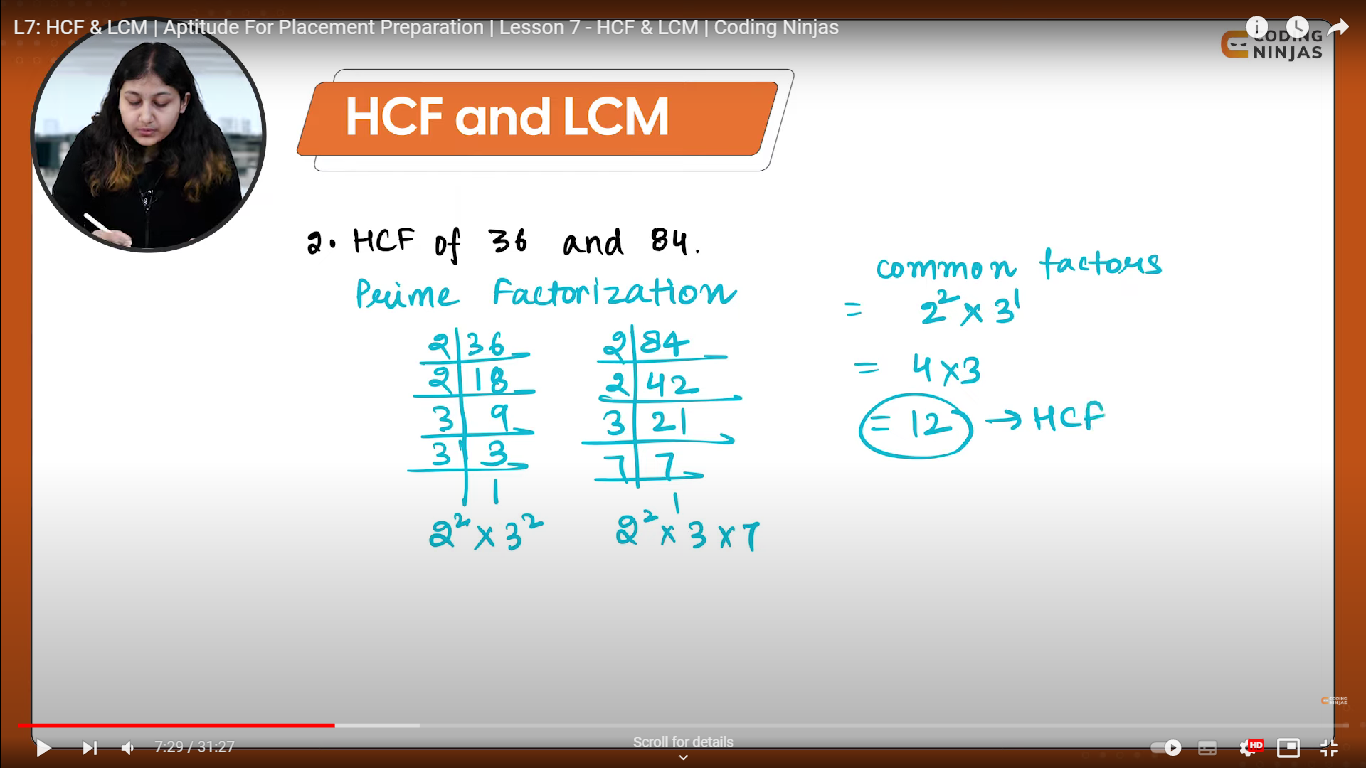 L7: HCF & LCM | Aptitude For Placement Preparation | Lesson 7 - HCF & LCM | Coding Ninjas
CODING
NINJAS
HCF and LCM
2. HCF of 36 and 84.
Prime Factorization
2 | 36
2 | 18
3 | 9
3 | 3
1
2² × 3²
2 | 84
2 | 42
3 | 21
7 | 7
1
2² × 3 × 7
common factors
= 2² × 3¹
= 4 × 3
= 12 → HCF
CODING
NINJAS
7:29 / 31:27
Scroll for details
HD